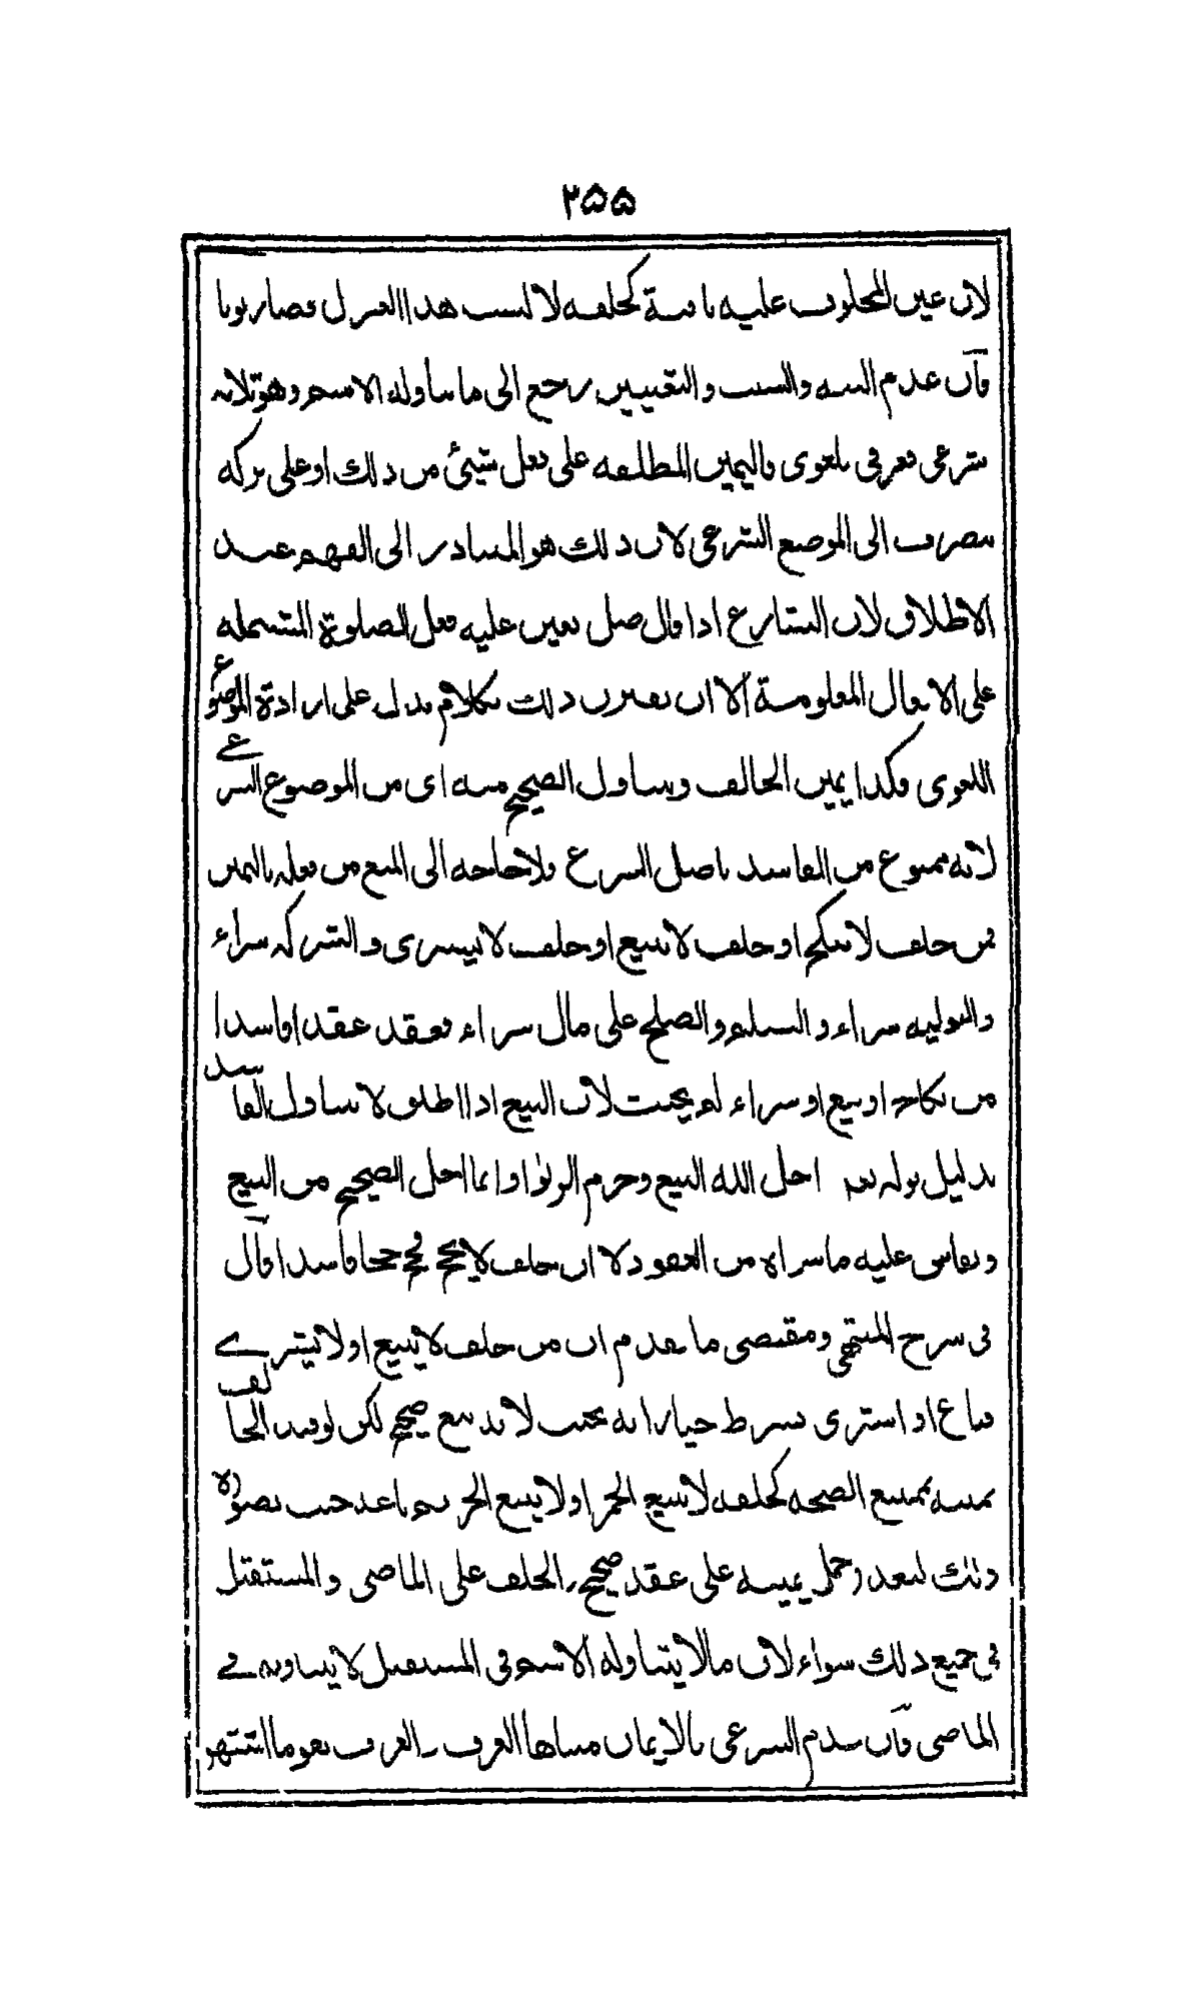 ٢٥٥
لان عين المحلوف عليه باقية كحلفه لا لبست هذا الغزل فصار ثوبا
فان عدم النية والسبب والتعيين رجع الى ما يتناوله الاسم وهو ثلاثة
شرعي فعرفي فلغوي فاليمين المطلقة على فعل شيئ من ذلك او على تركه
ينصرف الى الموضع الشرعي لان ذلك هو المتبادر الى الفهم عند
الاطلاق لان الشارع اذا قال صل تعين عليه فعل الصلوة المشتملة
على الافعال المعلومة الا ان يقترن ذلك بكلام يدل على ارادة الموضوع
اللغوي فكذا يمين الحالف ويتناول الصحيح منه اي من الموضوع الشرعي
لانه ممنوع من الفاسد باصل الشرع فلا حاجة الى المنع من فعله باليمين
فمن حلف لا ينكح او حلف لا يبيع او حلف لا يشتري والشركة شراء
والتولية شراء والسلم والصلح على مال شراء فعقد عقدا فاسدا
من نكاح او بيع او شراء لم يحنث لان البيع اذا اطلق لا يتناول الفاسد
بدليل قوله تعه احل الله البيع وحرم الربوا وانما احل الصحيح من البيع
ويقاس عليه ما سواه من العقود لا ان حلف لا يحج فحج حجا فاسدا قال
في شرح المنتهى ومقتضى ما تقدم ان من حلف لا يبيع او لا يشتري
فباع او اشترى بشرط خيار انه يحنث لانه بيع صحيح لكن لو قيد الحالف
يمينه بممتنع الصحة كحلفه لا يبيع الخمر او لا يبيع الحر ثم باعه حنث بصورة
ذلك لتعذر حمل يمينه على عقد صحيح والحلف على الماضي والمستقبل
في جميع ذلك سواء لان ما لا يتناوله الاسم في المستقبل لا يتناوله في
الماضي فان عدم الشرعي فالايمان مبناها العرف والعرف هو ما اشتهر